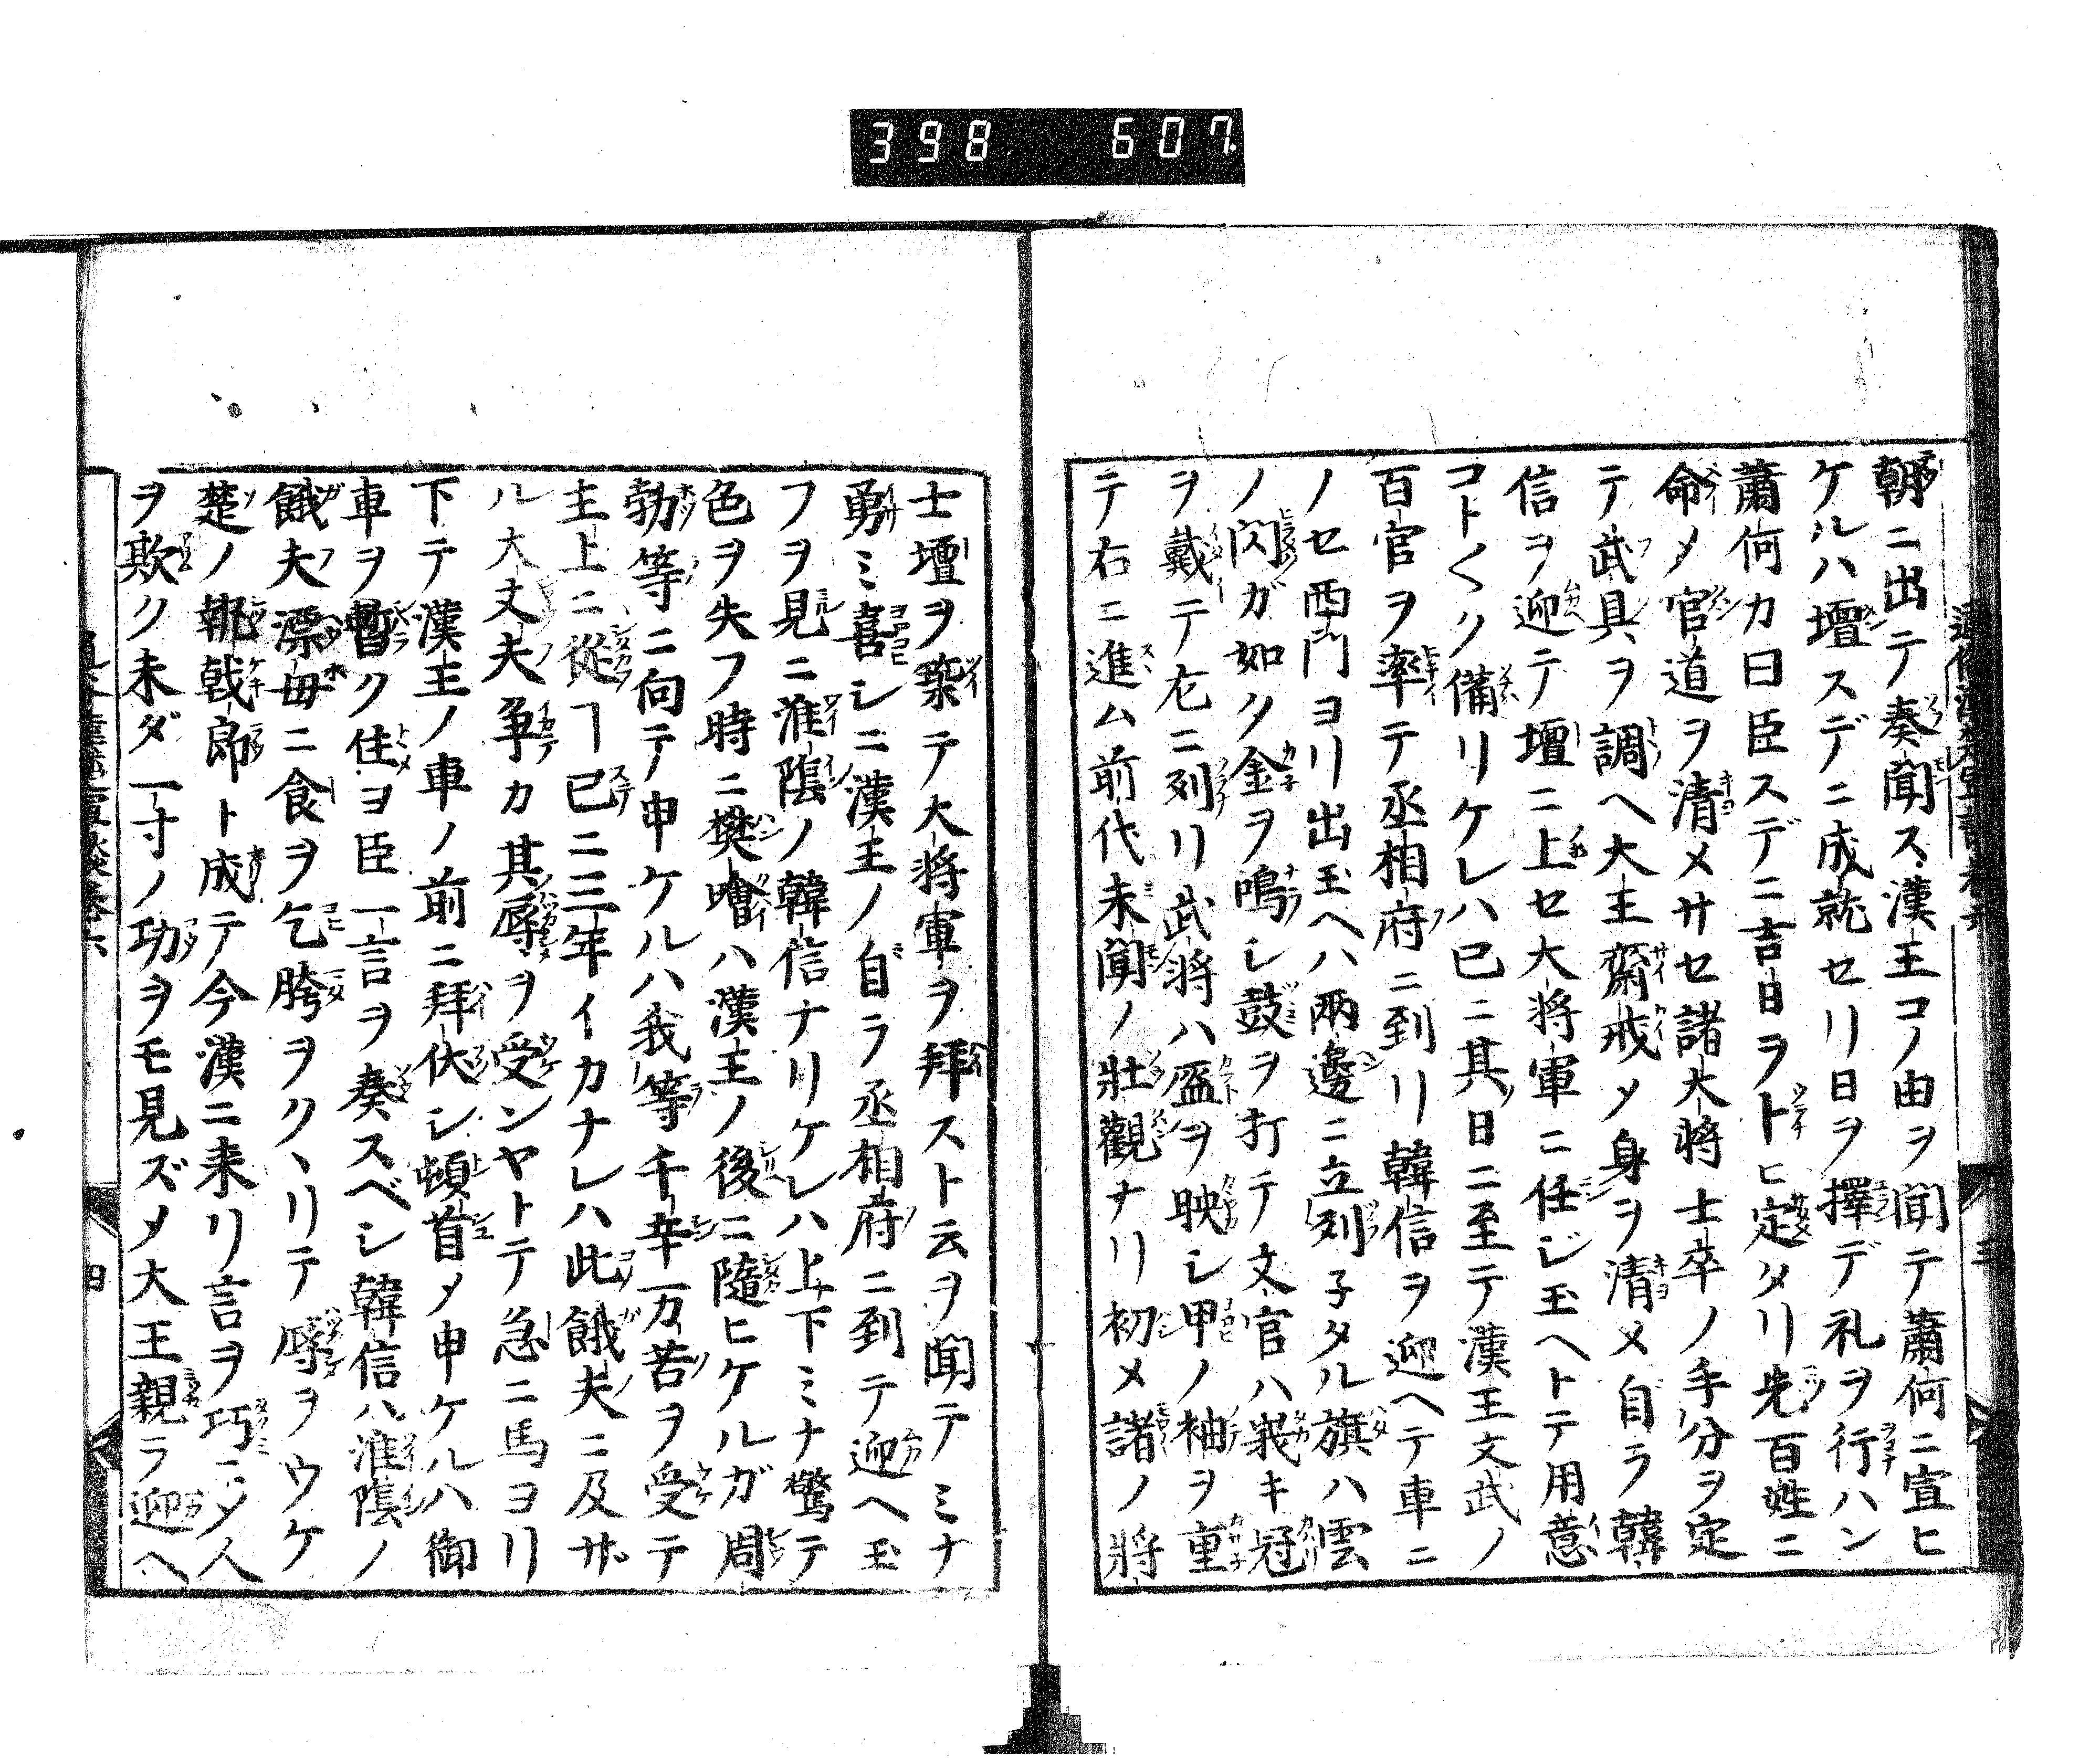 398 607
朝ニ出テ奏聞ス漢王コノ由ヲ聞テ蕭何ニ宣ヒ
ケルハ壇スデニ成就セリ日ヲ擇デ礼ヲ行ハン
蕭何カ曰臣スデニ吉日ヲトヒ定メタリ先百姓ニ
命メ官道ヲ清メサセ諸大將士卒ノ手分ヲ定
テ武具ヲ調ヘ大王齋戒メ身ヲ清メ自ラ韓
信ヲ迎テ壇ニ上セ大將軍ニ任ジ玉ヘトテ用意
コト〱ク備リケレハ已ニ其日ニ至テ漢王文武ノ
百官ヲ率テ丞相府ニ到リ韓信ヲ迎ヘテ車ニ
ノセ西門ヨリ出玉ヘハ兩邊ニ立列子タル旗ハ雲
ノ閃ガ如ク金ヲ鳴シ鼓ヲ打テ文官ハ峩キ冠
ヲ戴テ左ニ列リ武將ハ盔ヲ映シ甲ノ袖ヲ重
テ右ニ進ム前代未聞ノ壯觀ナリ初メ諸ノ將
士壇ヲ築テ大將軍ヲ拜スト云ヲ聞テミナ
勇ミ喜シニ漢王ノ自ラ丞相府ニ到テ迎ヘ玉
フヲ見ニ淮陰ノ韓信ナリケレハ上下ミナ驚テ
色ヲ失フ時ニ樊噲ハ漢王ノ後ニ隨ヒケルガ周
勃等ニ向テ申ケルハ我等千辛万苦ヲ受テ
主上ニ從ヿ已ニ三年イカナレハ此餓夫ニ及ザ
ル大丈夫争カ其辱ヲ受ンヤトテ急ニ馬ヨリ
下テ漢王ノ車ノ前ニ拜伏シ頓首メ申ケルハ御
車ヲ暫ク住ヨ臣一言ヲ奏スベシ韓信ハ淮陰ノ
餓夫漂母ニ食ヲ乞胯ヲクヽリテ辱ヲウケ
楚ノ執戟郎ト成テ今漢ニ来リ言ヲ巧ニメ人
ヲ欺ク未ダ一寸ノ功ヲモ見ズメ大王親ラ迎ヘ